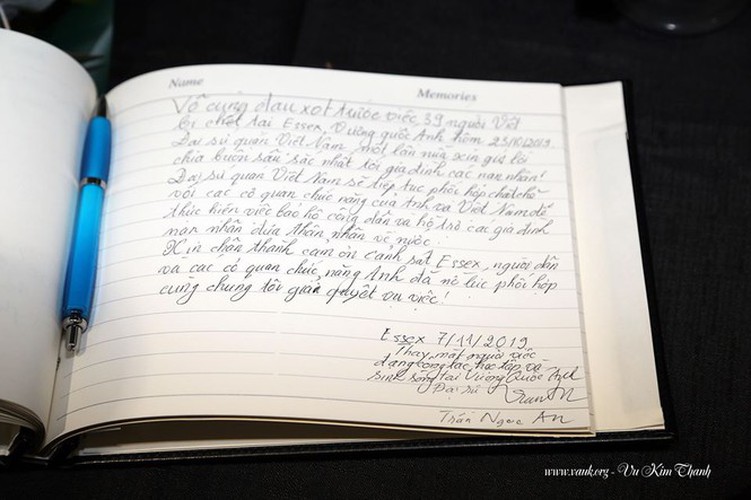 Name Memories
Vô cùng đau xót trước việc 39 người Việt
bị chết tại Essex, Vương quốc Anh hôm 23/10/2019.
Đại sứ quán Việt Nam một lần nữa xin gửi lời
chia buồn sâu sắc nhất tới gia đình các nạn nhân!
Đại sứ quán Việt Nam sẽ tiếp tục phối hợp chặt chẽ
với các cơ quan chức năng của Anh và Việt Nam để
thực hiện việc bảo hộ công dân và hỗ trợ các gia đình
nạn nhân đưa thân nhân về nước.
Xin chân thành cảm ơn cảnh sát Essex, người dân
và các cơ quan chức năng Anh đã nỗ lực phối hợp
cùng chúng tôi giải quyết vụ việc!
Essex 7/11/2019
Thay mặt người việt
đang công tác, học tập và
sinh sống tại Vương Quốc Anh
Đại sứ
Trần Ngọc An
www.vauk.org - Vu Kim Thanh